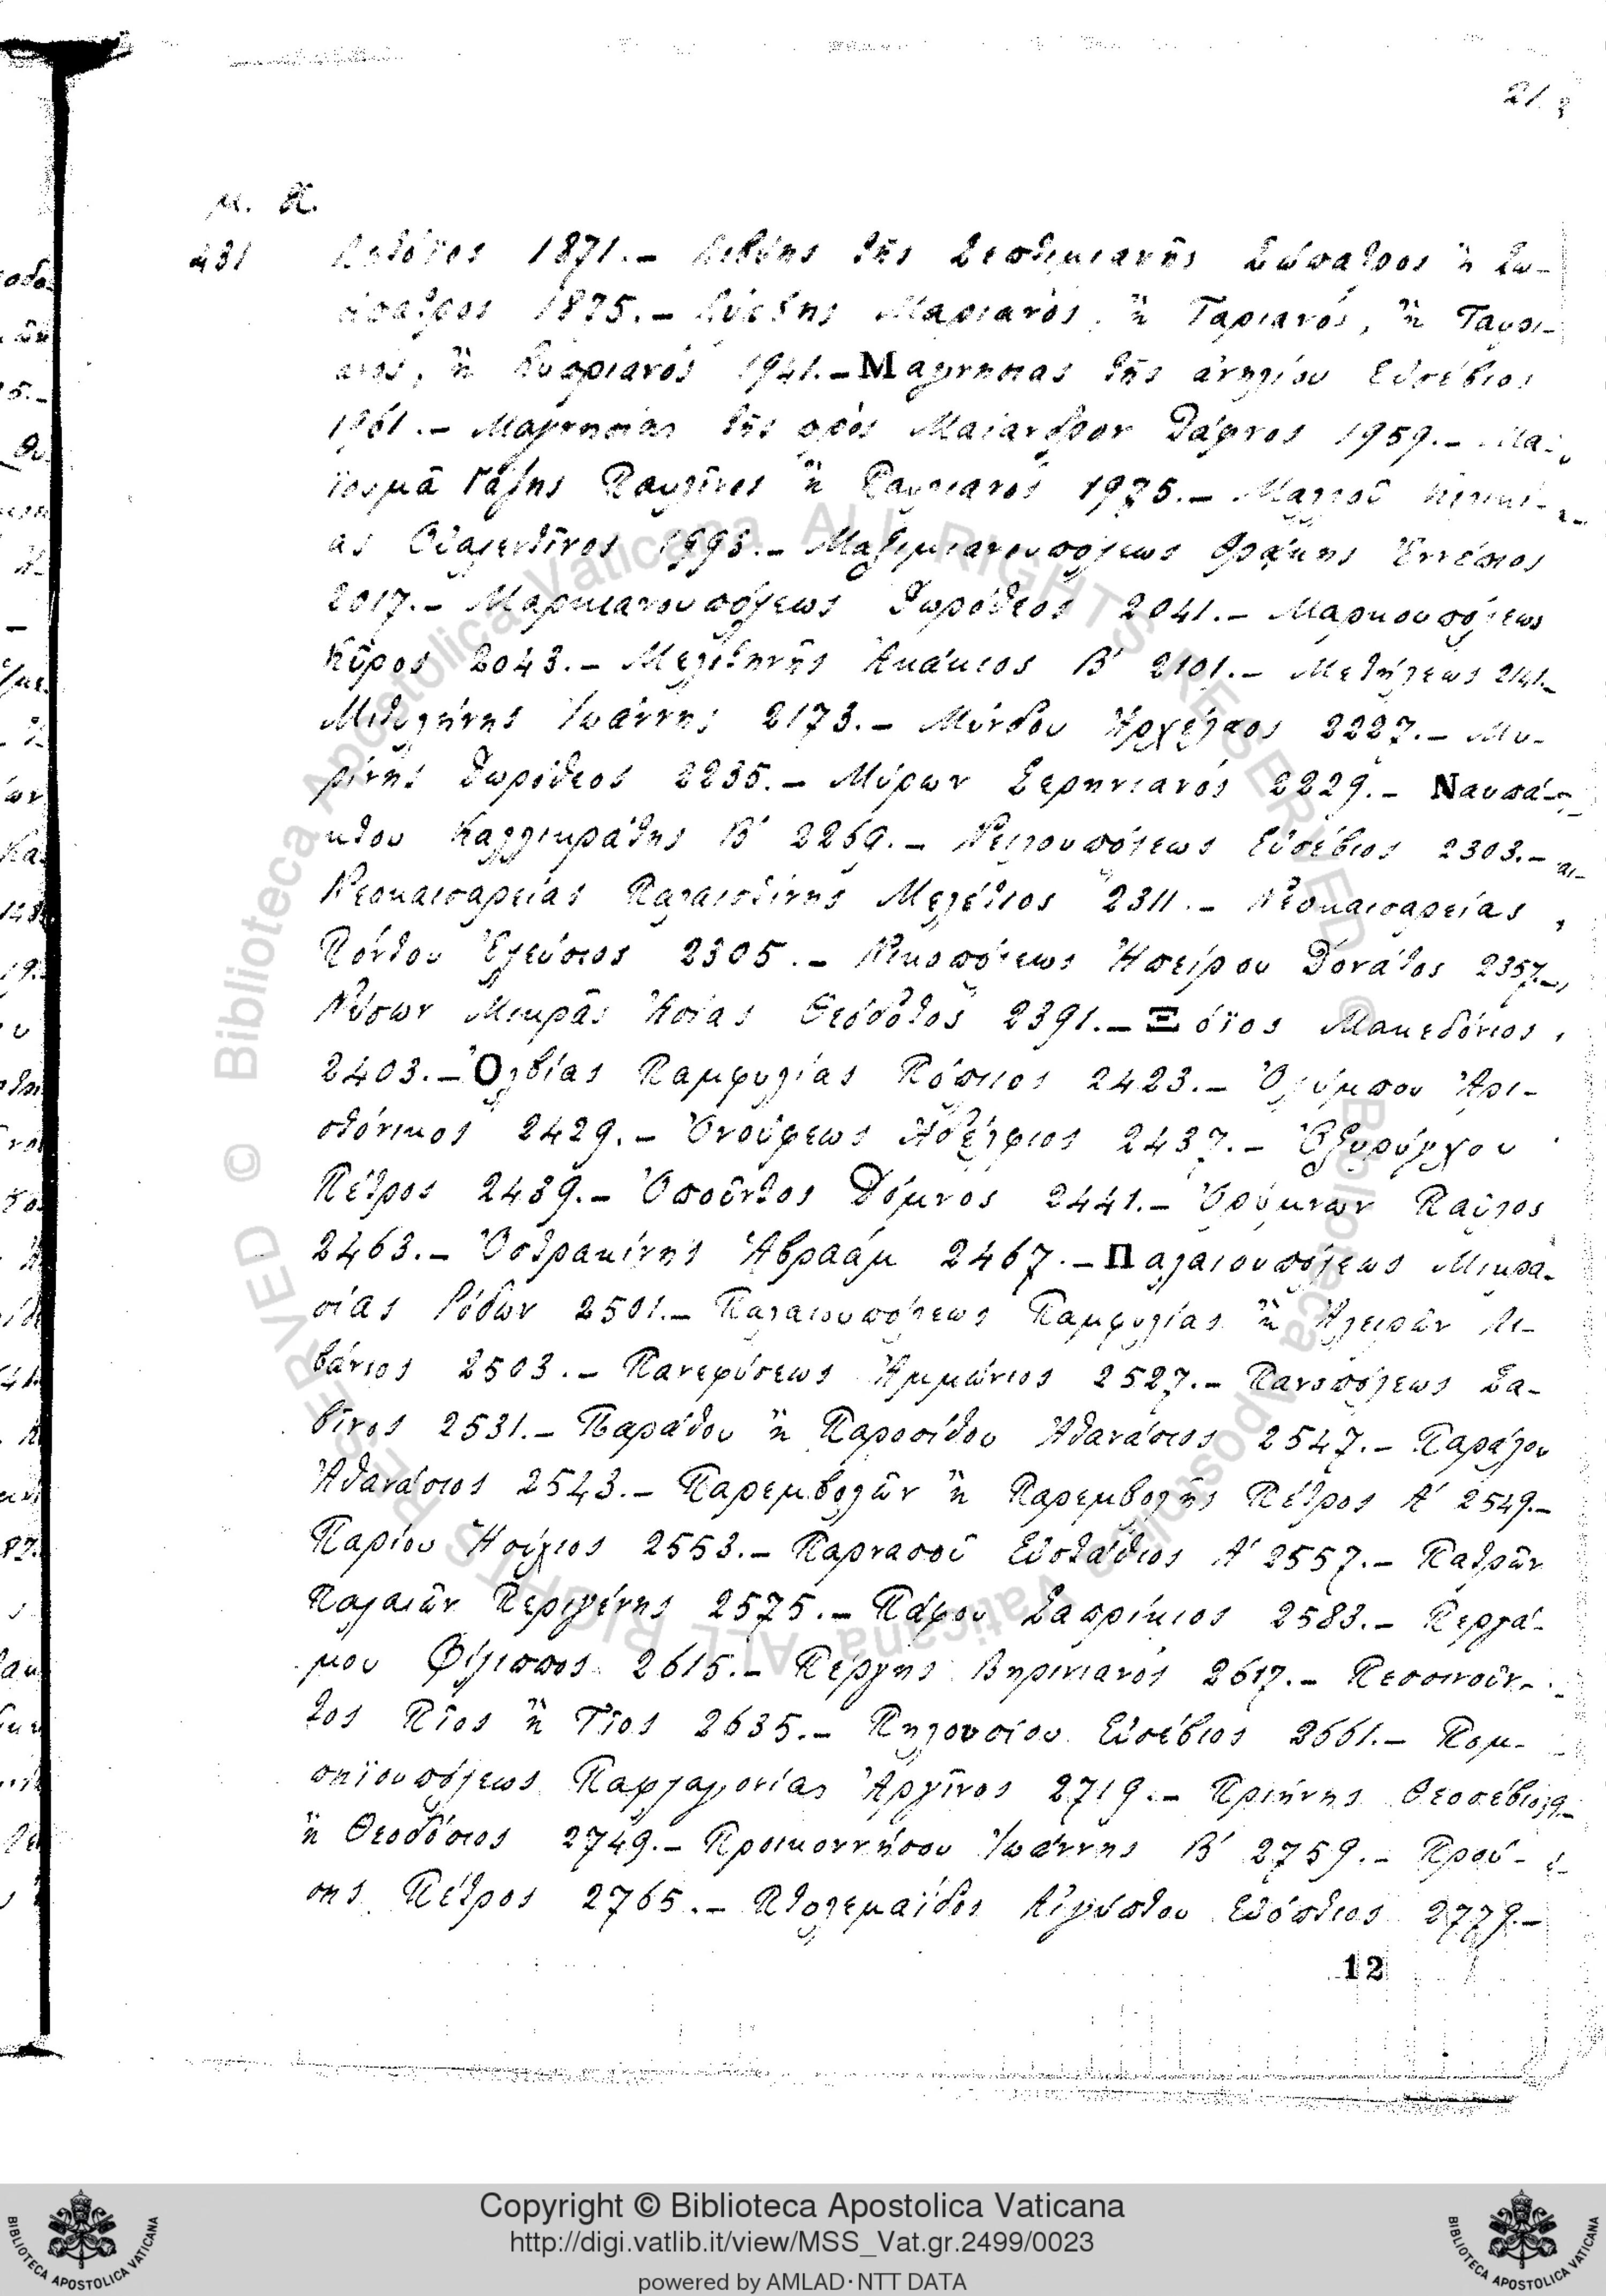 21
μ. Χ.
431 1871.– Λιβύης τῆς Σεπτιμιανῆς Σώπατρος ἢ Σω-
σπατρος 1875.– Μαριανός, ἢ Ταριανός, ἢ Ταυρι-
ανός, ἢ Κυπριανός 1941.– Μαγνησίας τῆς ἀνηλίου Εὐσέβιος
1961.– Μαγνησίας τῆς πρὸς Μαίανδρον Δάφνος 1959.– Μα-
ϊουμᾶ Γάζης Παυλῖνος ἢ Παυλιανός 1975.– Μαλλοῦ Κιλικί-
ας Οὐαλεντῖνος 1993.– Μαξιμιανουπόλεως Θράκης Ἐννέπιος
2017.– Μαρκιανουπόλεως Δωρόθεος 2041.– Μαρκουπόλεως
Κῦρος 2043.– Μελιτηνῆς Ἀκάκιος Β′ 2101.– Μετήλεως 2141.–
Μιτυλήνης Ἰωάννης 2173.– Μύνδου Ἀρχέλαος 2227.– Μυ-
ρίνης Δωρόθεος 2235.– Μύρων Ξερηνιανός 2229.– Ναυπά-
κτου Καλλικράτης Β′ 2269.– Νειλουπόλεως Εὐσέβιος 2303.–
Νεοκαισαρείας Παλαιστίνης Μελέτιος 2311.– Νεοκαισαρείας
Πόντου Ἐλεύσιος 2305.– Νικοπόλεως Ἠπείρου Δονάτος 2357.–
Νύσων Μικρᾶς Ἀσίας Θεόδοτος 2391.– Ξόϊος Μακεδόνιος
2403.– Ὀλβίας Παμφυλίας Πόπιος 2423.– Ὀλύμπου Ἀρι-
στόνικος 2429.– Ὀνούφεως Ἀδέλφιος 2437.– Ὀξυρύγχου
Πέτρος 2439.– Ὀποῦντος Δόμνος 2441.– Ὀρύμνων Παῦλος
2463.– Ὀστρακίνης Ἀβραάμ 2467.– Παλαιουπόλεως Μικρα-
σίας Ρόδων 2501.– Παλαιουπόλεως Παμφυλίας ἢ Ἀλειρῶν Λι-
βάνιος 2503.– Πανεφύσεως Ἀμμώνιος 2527.– Πανοπόλεως Σα-
βῖνος 2531.– Παράθου ἢ Παροσίθου Ἀθανάσιος 2547.– Παράλου
Ἀθανάσιος 2543.– Παρεμβολῶν ἢ Παρεμβολῆς Πέτρος Α′ 2549.–
Παρίου Ἡσύχιος 2553.– Παρνασοῦ Εὐστάθιος Α′ 2557.– Πατρῶν
Παλαιῶν Περιγένης 2575.– Πάφου Σαπρίκιος 2583.– Περγά-
μου Φίλιππος 2615.– Πέργης Βηρινιανός 2617.– Πεσσινοῦν-
τος Πῖος ἢ Τῖος 2635.– Πηλουσίου Εὐσέβιος 2661.– Πομ-
πηϊουπόλεως Παφλαγονίας Ἀργῖνος 2719.– Πριήνης Θεοσέβιος
ἢ Θεοδόσιος 2749.– Προικοννήσου Ἰωάννης Β′ 2759.– Πρού-
σης Πέτρος 2765.– Πτολεμαΐδος Αἰγύπτου Εὐόπτιος 2779.–
12
Copyright © Biblioteca Apostolica Vaticana
http://digi.vatlib.it/view/MSS_Vat.gr.2499/0023
powered by AMLAD·NTT DATA